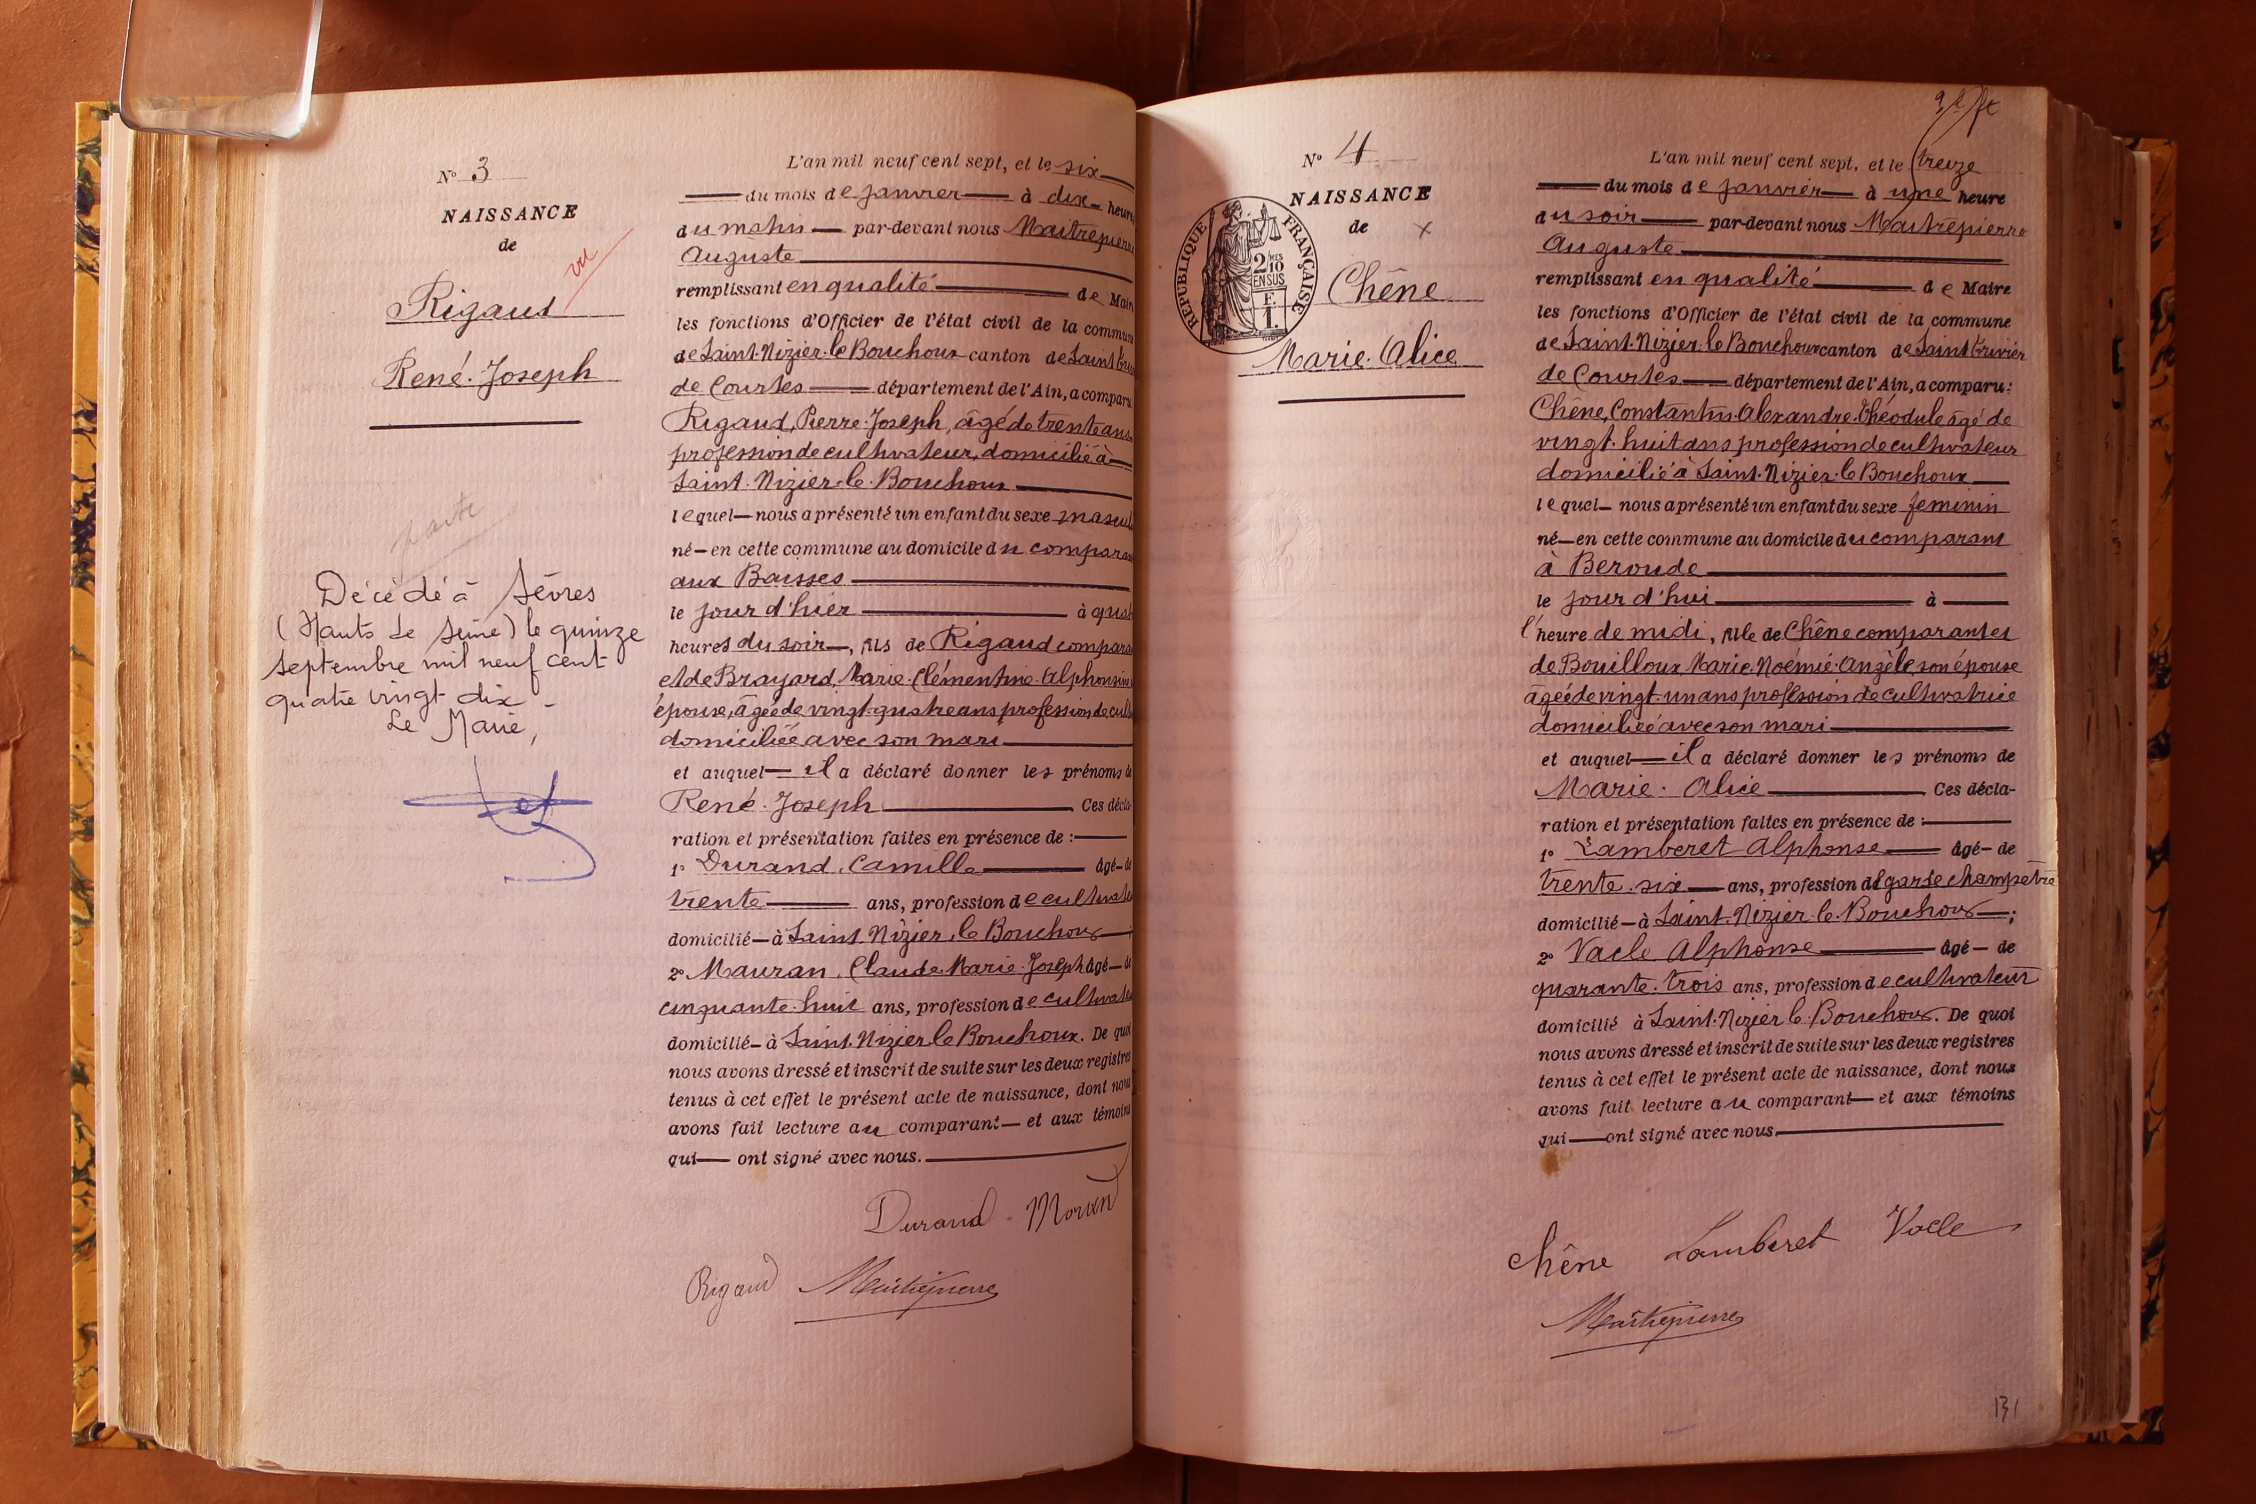 N° 3
NAISSANCE
de
Rigaud
René Joseph
vu
Décédé à Sèvres
(Hauts de Seine) le quinze
septembre mil neuf cent
quatre vingt dix -
Le Maire,
L'an mil neuf cent sept, et le six
du mois de janvier à dix heure
du matin par-devant nous Maitrepierre
Auguste
remplissant en qualité de Maire
les fonctions d'Officier de l'état civil de la commune
de Saint-Nizier-le-Bouchoux canton de Saint Triv
de Courtes département de l'Ain, a comparu
Rigaud, Pierre-Joseph, âgé de trente ans
profession de cultivateur, domicilié à
Saint-Nizier-le-Bouchoux
lequel nous a présenté un enfant du sexe mascul
né en cette commune au domicile du comparan
aux Baisses
le jour d'hier à quat
heures du soir, fils de Rigaud compara
et de Brayard, Marie-Clémentine-Alphonsine
épouse, âgée de vingt-quatre ans profession de culti
domiciliée avec son mari
et auquel il a déclaré donner les prénoms de
René-Joseph Ces décla-
ration et présentation faites en présence de :
1° Durand, Camille âgé de
trente ans, profession de cultivate
domicilié à Saint-Nizier-le-Bouchoux
2° Mauran, Claude-Marie-Joseph âgé de
cinquante-huit ans, profession de cultivate
domicilié à Saint-Nizier le Bouchoux. De quoi
nous avons dressé et inscrit de suite sur les deux registres
tenus à cet effet le présent acte de naissance, dont nous
avons fait lecture au comparant et aux témoins
qui ont signé avec nous.
Durand
Rigaud Maitrepierre
N° 4
NAISSANCE
de
x
RÉPUBLIQUE FRANÇAISE
2/10
EN SUS
F.
1.
Chêne
Marie-Alice
L'an mil neuf cent sept, et le treize
du mois de janvier à une heure
du soir par-devant nous Maitrepierre
Auguste
remplissant en qualité de Maire
les fonctions d'Officier de l'état civil de la commune
de Saint-Nizier-le-Bouchoux canton de Saint Trivier
de Courtes département de l'Ain, a comparu :
Chêne, Constantin-Alexandre-Théodule âgé de
vingt-huit ans profession de cultivateur
domicilié à Saint-Nizier-le-Bouchoux
lequel nous a présenté un enfant du sexe feminin
né en cette commune au domicile du comparant
à Beroude
le jour d'hui à
l'heure de midi, fille de Chêne comparant et
de Bouilloux Marie-Noémie-Angèle son épouse
âgée de vingt-un ans profession de cultivatrice
domiciliée avec son mari
et auquel il a déclaré donner les prénoms de
Marie-Alice Ces décla-
ration et présentation faites en présence de :
1° Lamberet Alphonse âgé de
trente-six ans, profession de garde champêtre
domicilié à Saint-Nizier-le-Bouchoux ;
2° Vacle Alphonse âgé de
quarante-trois ans, profession de cultivateur
domicilié à Saint-Nizier le-Bouchoux. De quoi
nous avons dressé et inscrit de suite sur les deux registres
tenus à cet effet le présent acte de naissance, dont nous
avons fait lecture au comparant et aux témoins
qui ont signé avec nous.
Chêne Lamberet Vacle
Maitrepierre
131